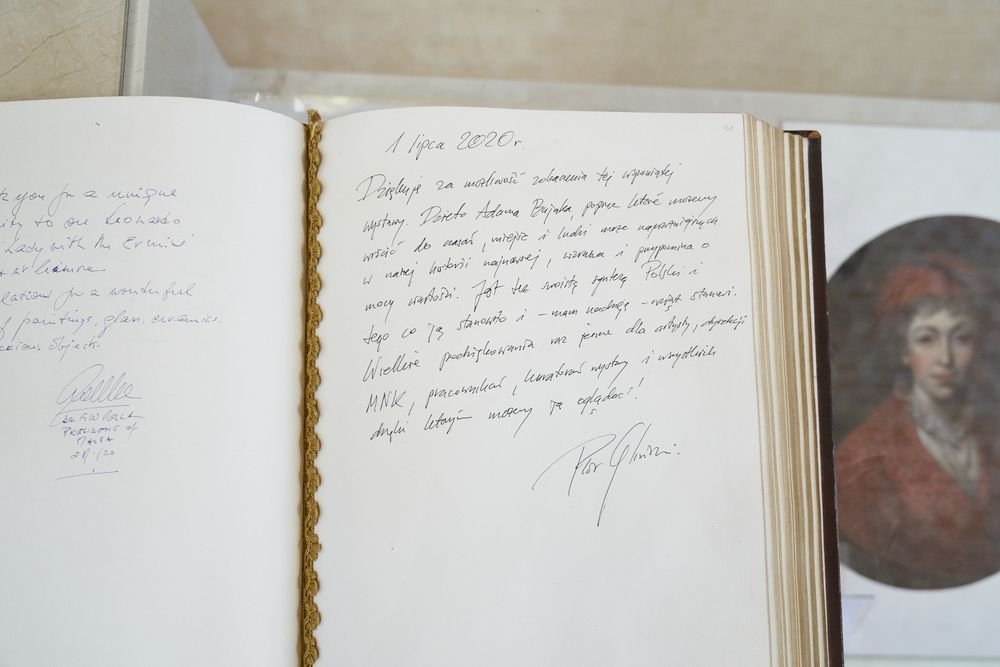 k you for a unique
ity to see Leonardo
Lady with the Ermine
for a wonderful
of paintings, glass, ceramics,
precious objects.
PRESIDENT of
MALTA
1 lipca 2020 r.
Dziękuję za możliwość zobaczenia tej wspaniałej
wystawy. Dzieło Adama Bujaka, poprzez które możemy
wrócić do czasów, miejsc i ludzi może najważniejszych
w naszej historii najnowszej, wzrusza i przypomina o
mocy wartości. Jest też swoistą syntezą Polski i
tego co ją stanowiło i – mam nadzieję – wciąż stanowi.
Wielkie podziękowania raz jeszcze dla artysty, dyrekcji
MNK, pracowników, kuratorów wystawy i wszystkich
dzięki którym możemy ją oglądać!
Piotr Gliński